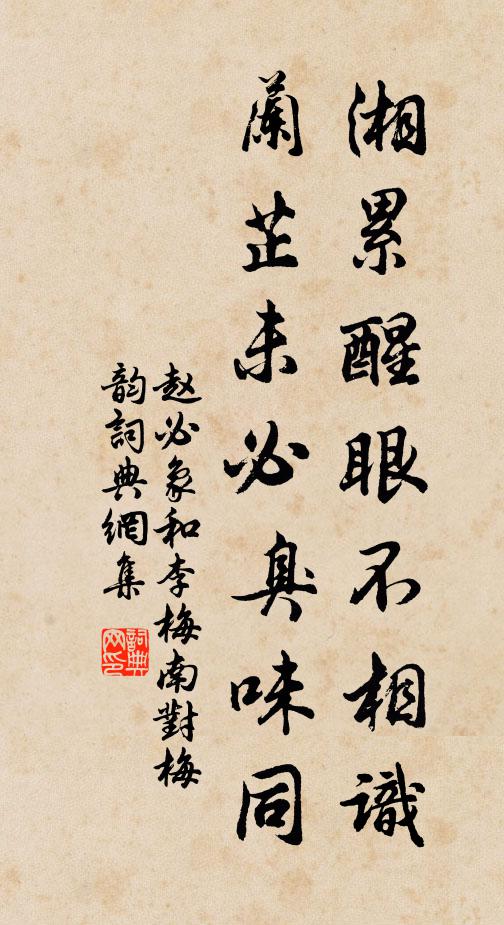 湘累醒眼不相識
蘭芷未必臭味同
赵必象和李梅南對梅
韵詞典網集
詞典网印